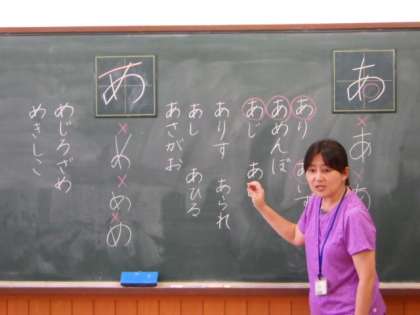 あ
×
あ
あ
あり あいす
あめんぼ
あじ あ
ありす あられ
あし あひる
あさがお
あ
×
め
×
め
×
め
めじろざめ
めきしこ